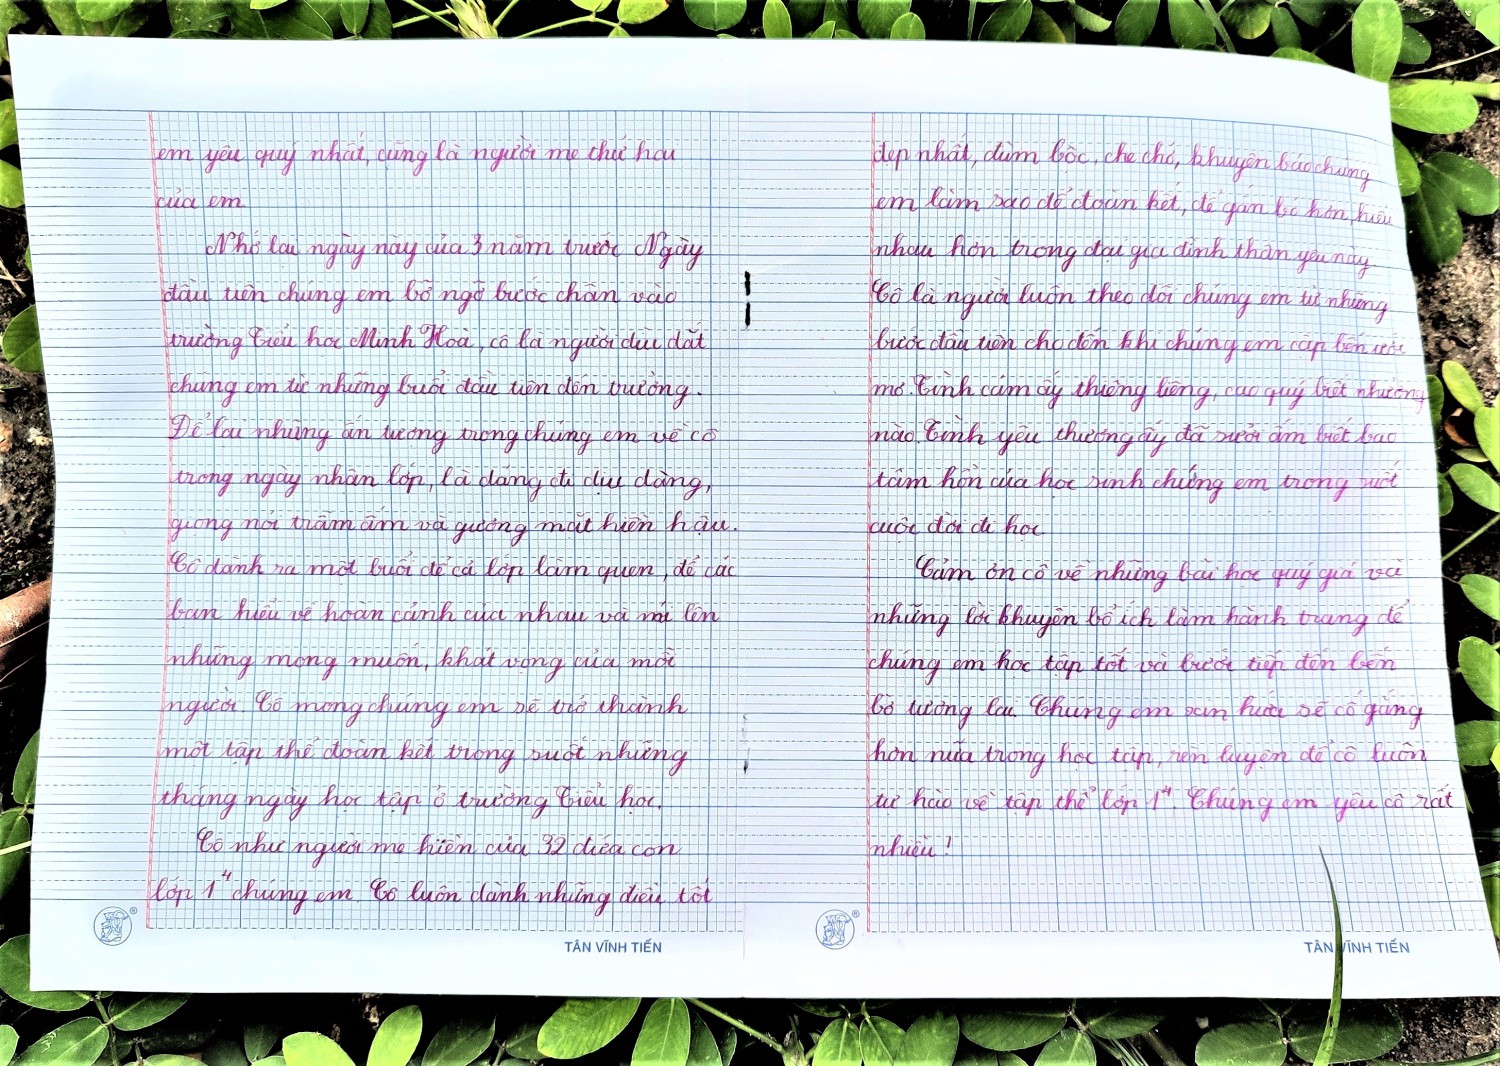 em yêu quý nhất, cũng là người mẹ thứ hai
của em
Nhớ lại ngày này của 3 năm trước. Ngày
đầu tiên chúng em bỡ ngỡ bước chân vào
trường Tiểu học Minh Hoà, cô là người dìu dắt
chúng em từ những buổi đầu tiên đến trường.
Để lại những ấn tượng trong chúng em về cô
trong ngày nhận lớp, là dáng đi dịu dàng,
giọng nói trầm ấm và gương mặt hiền hậu.
Cô dành ra một buổi để cả lớp làm quen, để các
bạn hiểu về hoàn cảnh của nhau và nói lên
những mong muốn, khát vọng của mỗi
người. Cô mong chúng em sẽ trở thành
một tập thể đoàn kết trong suốt những
tháng ngày học tập ở trường Tiểu học.
Cô như người mẹ hiền của 32 đứa con
lớp 1⁴ chúng em. Cô luôn dành những điều tốt
TÂN VĨNH TIẾN
đẹp nhất, đùm bọc, che chở, khuyên bảo chúng
em làm sao để đoàn kết, để gắn bó hơn, hiểu
nhau hơn trong đại gia đình thân yêu này.
Cô là người luôn theo dõi chúng em từ những
bước đầu tiên cho đến khi chúng em cập bến ước
mơ. Tình cảm ấy thiêng liêng, cao quý biết nhường
nào. Tình yêu thương ấy đã sưởi ấm biết bao
tâm hồn của học sinh chúng em trong suốt
cuộc đời đi học.
Cảm ơn cô về những bài học quý giá và
những lời khuyên bổ ích làm hành trang để
chúng em học tập tốt và bước tiếp đến bến
bờ tương lai. Chúng em xin hứa sẽ cố gắng
hơn nữa trong học tập, rèn luyện để cô luôn
tự hào về tập thể lớp 1⁴. Chúng em yêu cô rất
nhiều!
TÂN VĨNH TIẾN